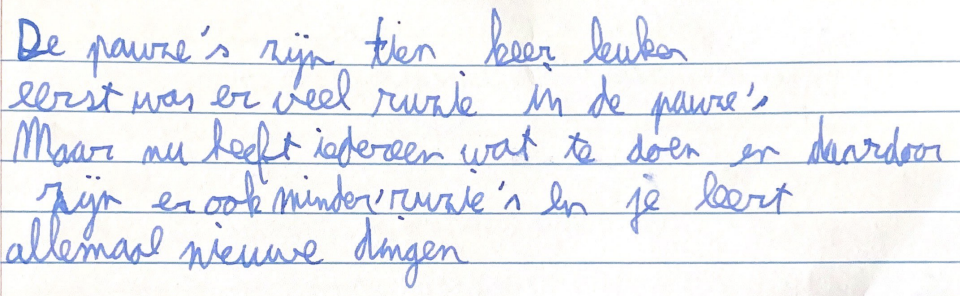 De pauze's zijn tien keer leuker
eerst was er veel ruzie in de pauze's
Maar nu heeft iedereen wat te doen en daardoor
zijn er ook minder ruzie's en je leert
allemaal nieuwe dingen